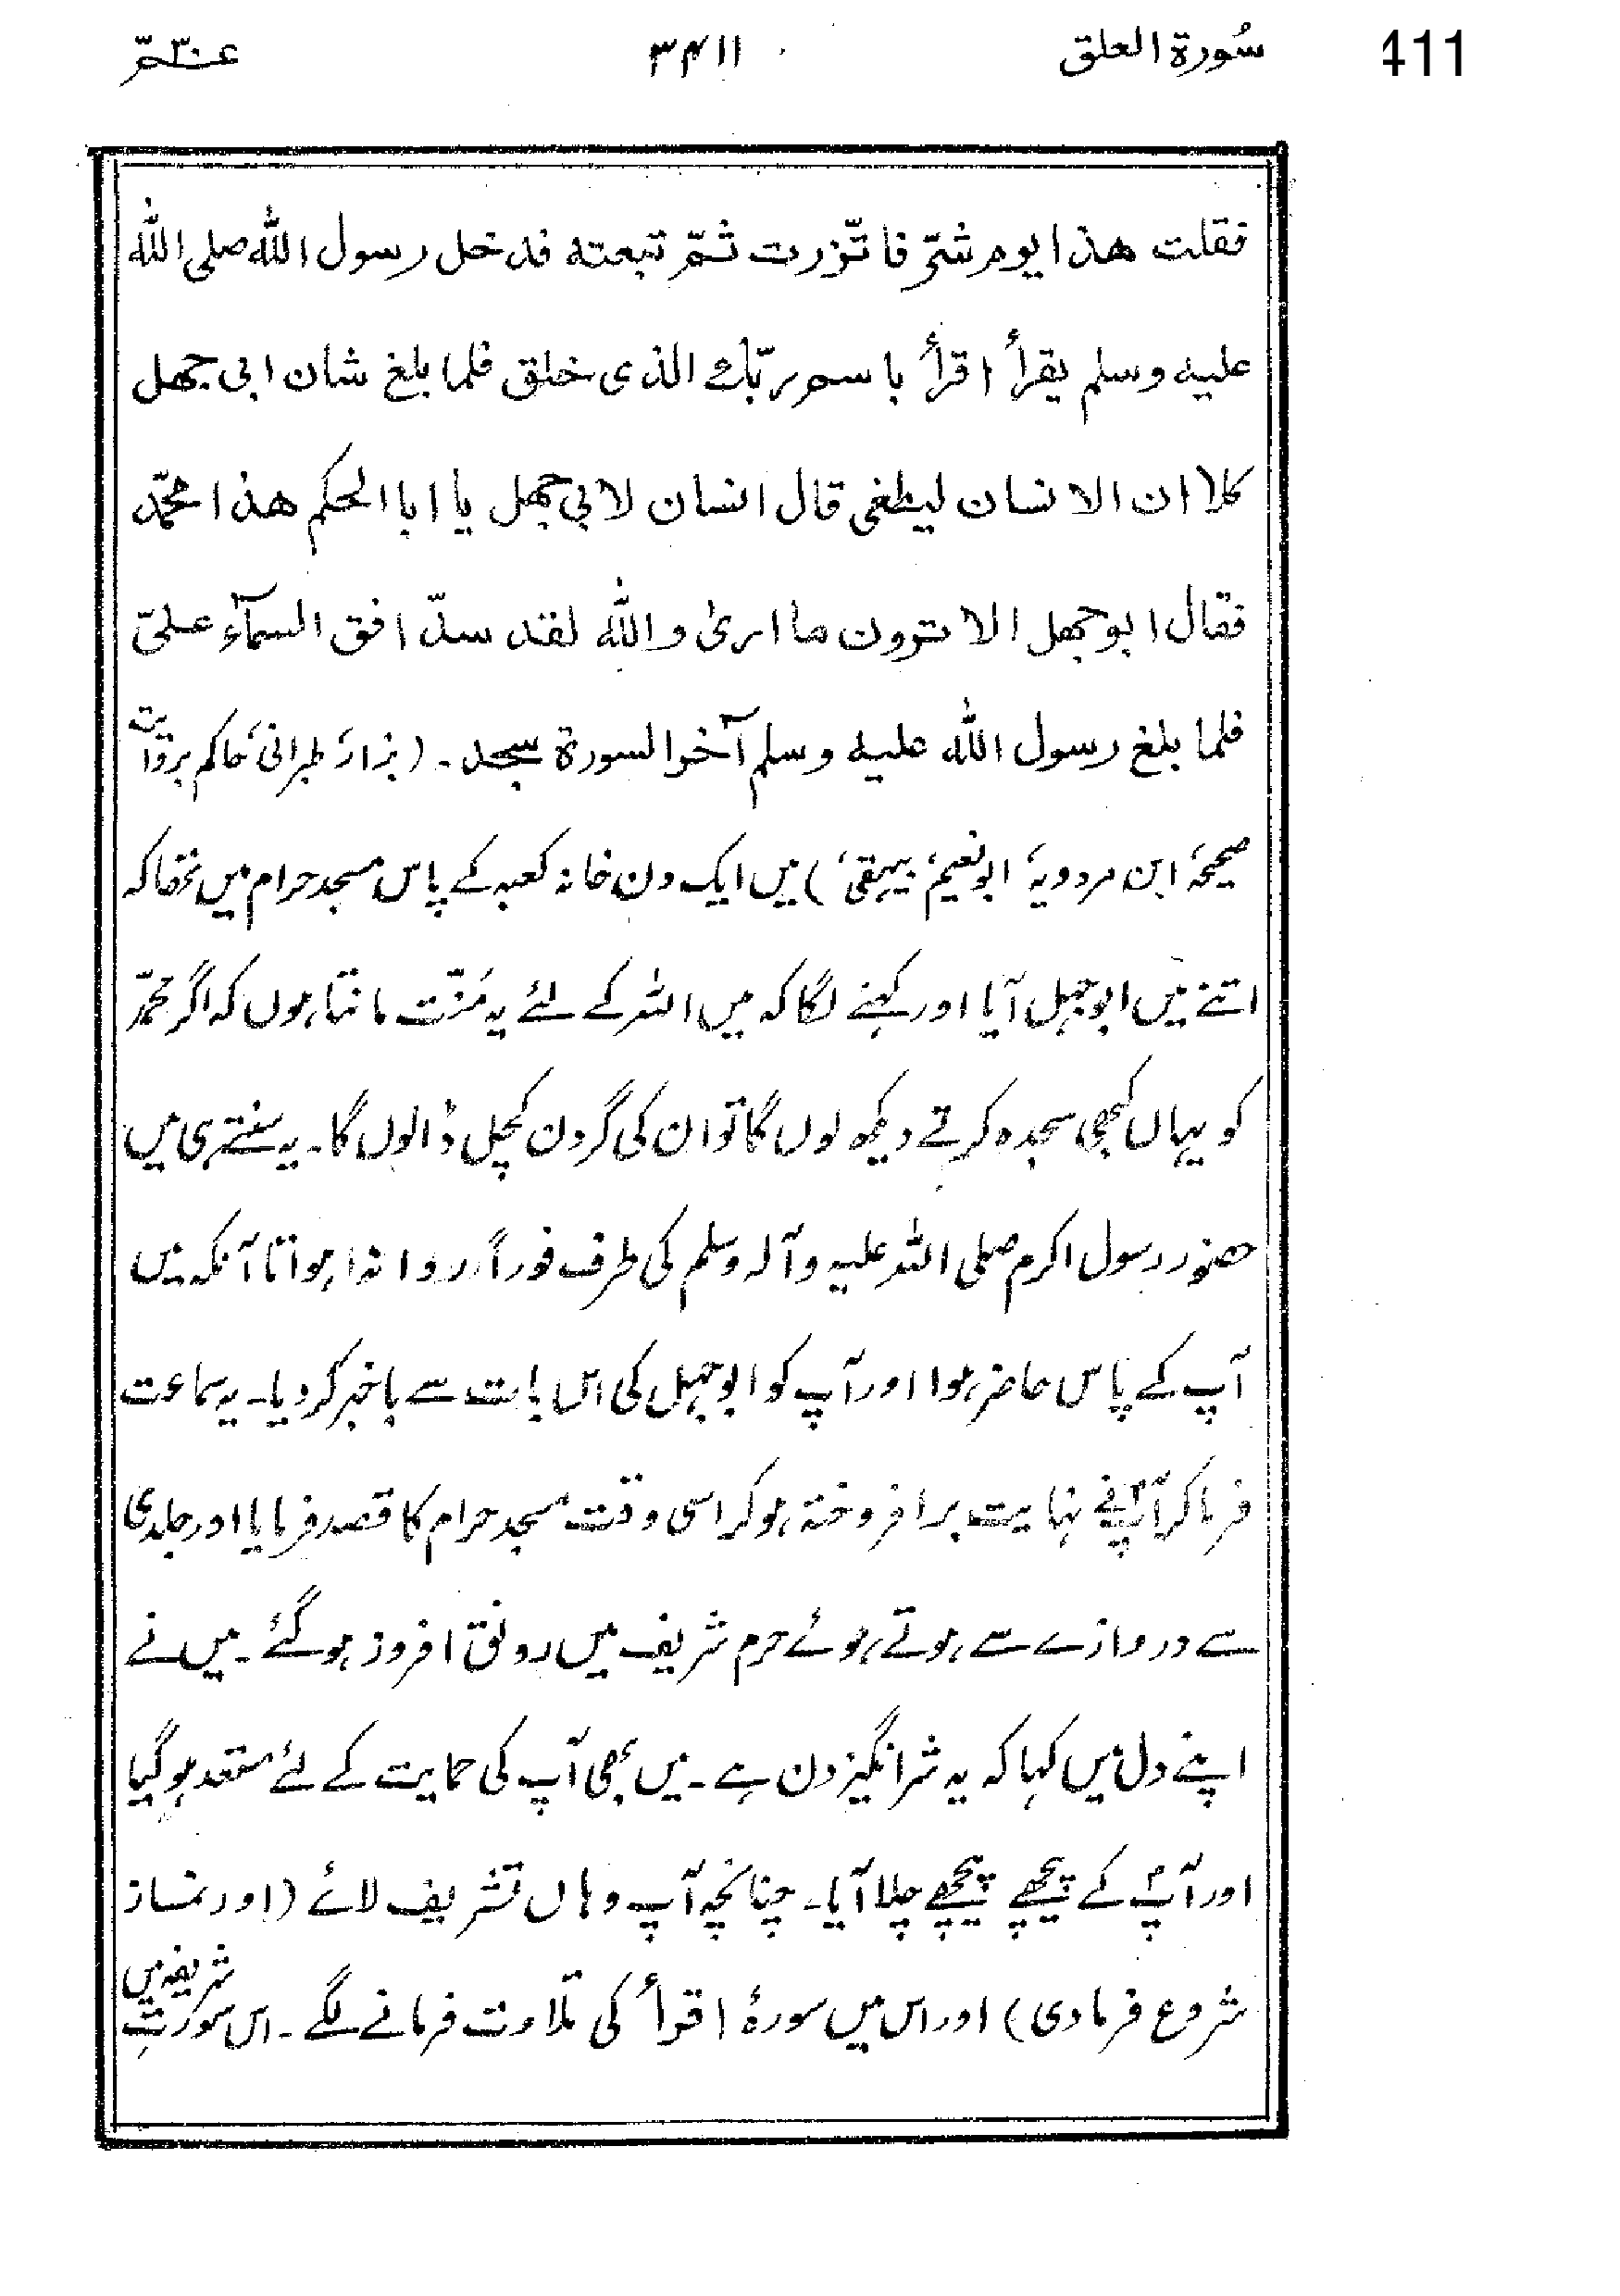 411 سُورة العلق ۳۴۱۱ عـمّ ۳۰
فقلت هذا يوم شرّ فاتّزرت ثمّ تبعته فدخل رسول اللّٰه صلى اللّٰه
عليه وسلم يقرأ اقرأ باسم ربّك الذى خلق فلما بلغ شان ابى جهل
كلا ان الانسان ليطغى قال انسان لابى جهل يا ابا الحكم هذا محمّد
فقال ابوجهل الا ترون ما ارىٰ واللّٰه لقد سدّ افق السمآء علىّ
فلما بلغ رسول اللّٰه عليه وسلم آخر السورة سجد ۔ (بزار، طبرانی، حاکم بروایت
صحیحہ، ابن مردویہ، ابونعیم، بیہقی،) میں ایک دن خانہ کعبہ کے پاس مسجد حرام میں تھا کہ
اتنے میں ابوجہل آیا اور کہنے لگا کہ میں اللہ کے لئے یہ مَنّت مانتا ہوں کہ اگر محمّد
کو یہاں کبھی سجدہ کرتے دیکھ لوں گا تو ان کی گردن کچل ڈالوں گا۔ یہ سنتے ہی میں
حضور رسول اکرم صلی اللہ علیہ وآلہ وسلم کی طرف فوراً روانہ ہوا تا آنکہ میں
آپ کے پاس حاضر ہوا اور آپ کو ابوجہل کی اس بات سے باخبر کر دیا۔ یہ سماعت
فرما کر آپؐ نے نہایت برافروختہ ہو کر اسی وقت مسجد حرام کا قصد فرمایا اور جلدی
سے دروازے سے ہوتے ہوئے حرم شریف میں رونق افروز ہو گئے ۔ میں نے
اپنے دل میں کہا کہ یہ شرانگیز دن ہے۔ میں بھی آپ کی حمایت کے لئے مستعد ہو گیا
اور آپؐ کے پیچھے پیچھے چلا آیا۔ چنانچہ آپ وہاں تشریف لائے (اور نماز
شروع فرما دی) اور اس میں سورۂ اقرأ کی تلاوت فرمانے لگے ۔ اس سورت شریفہ میں